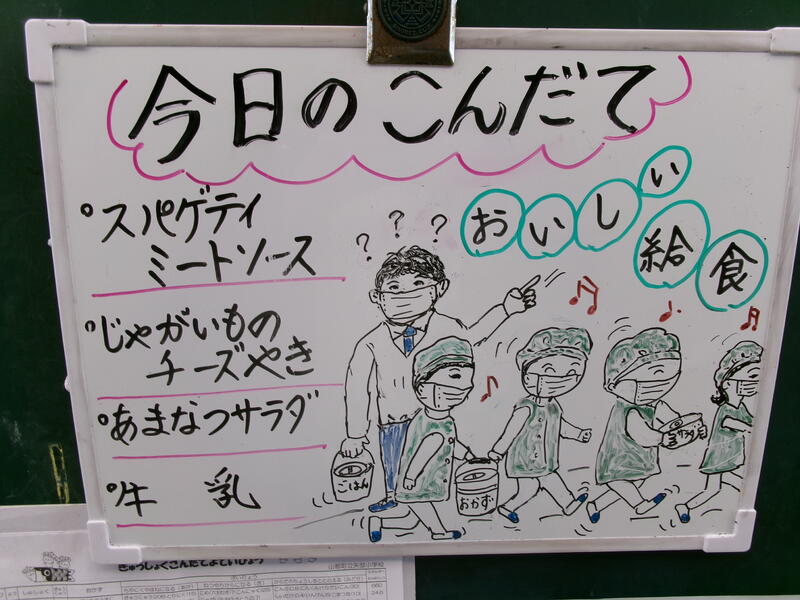 今日のこんだて
おいしい
給食
°スパゲティ
ミートソース
°じゃがいもの
チーズやき
°あまなつサラダ
°牛 乳
? ? ?
ごはん
おかず
サラダ
きゅうしょくこんだてよていひょう
山都町立矢部小学校